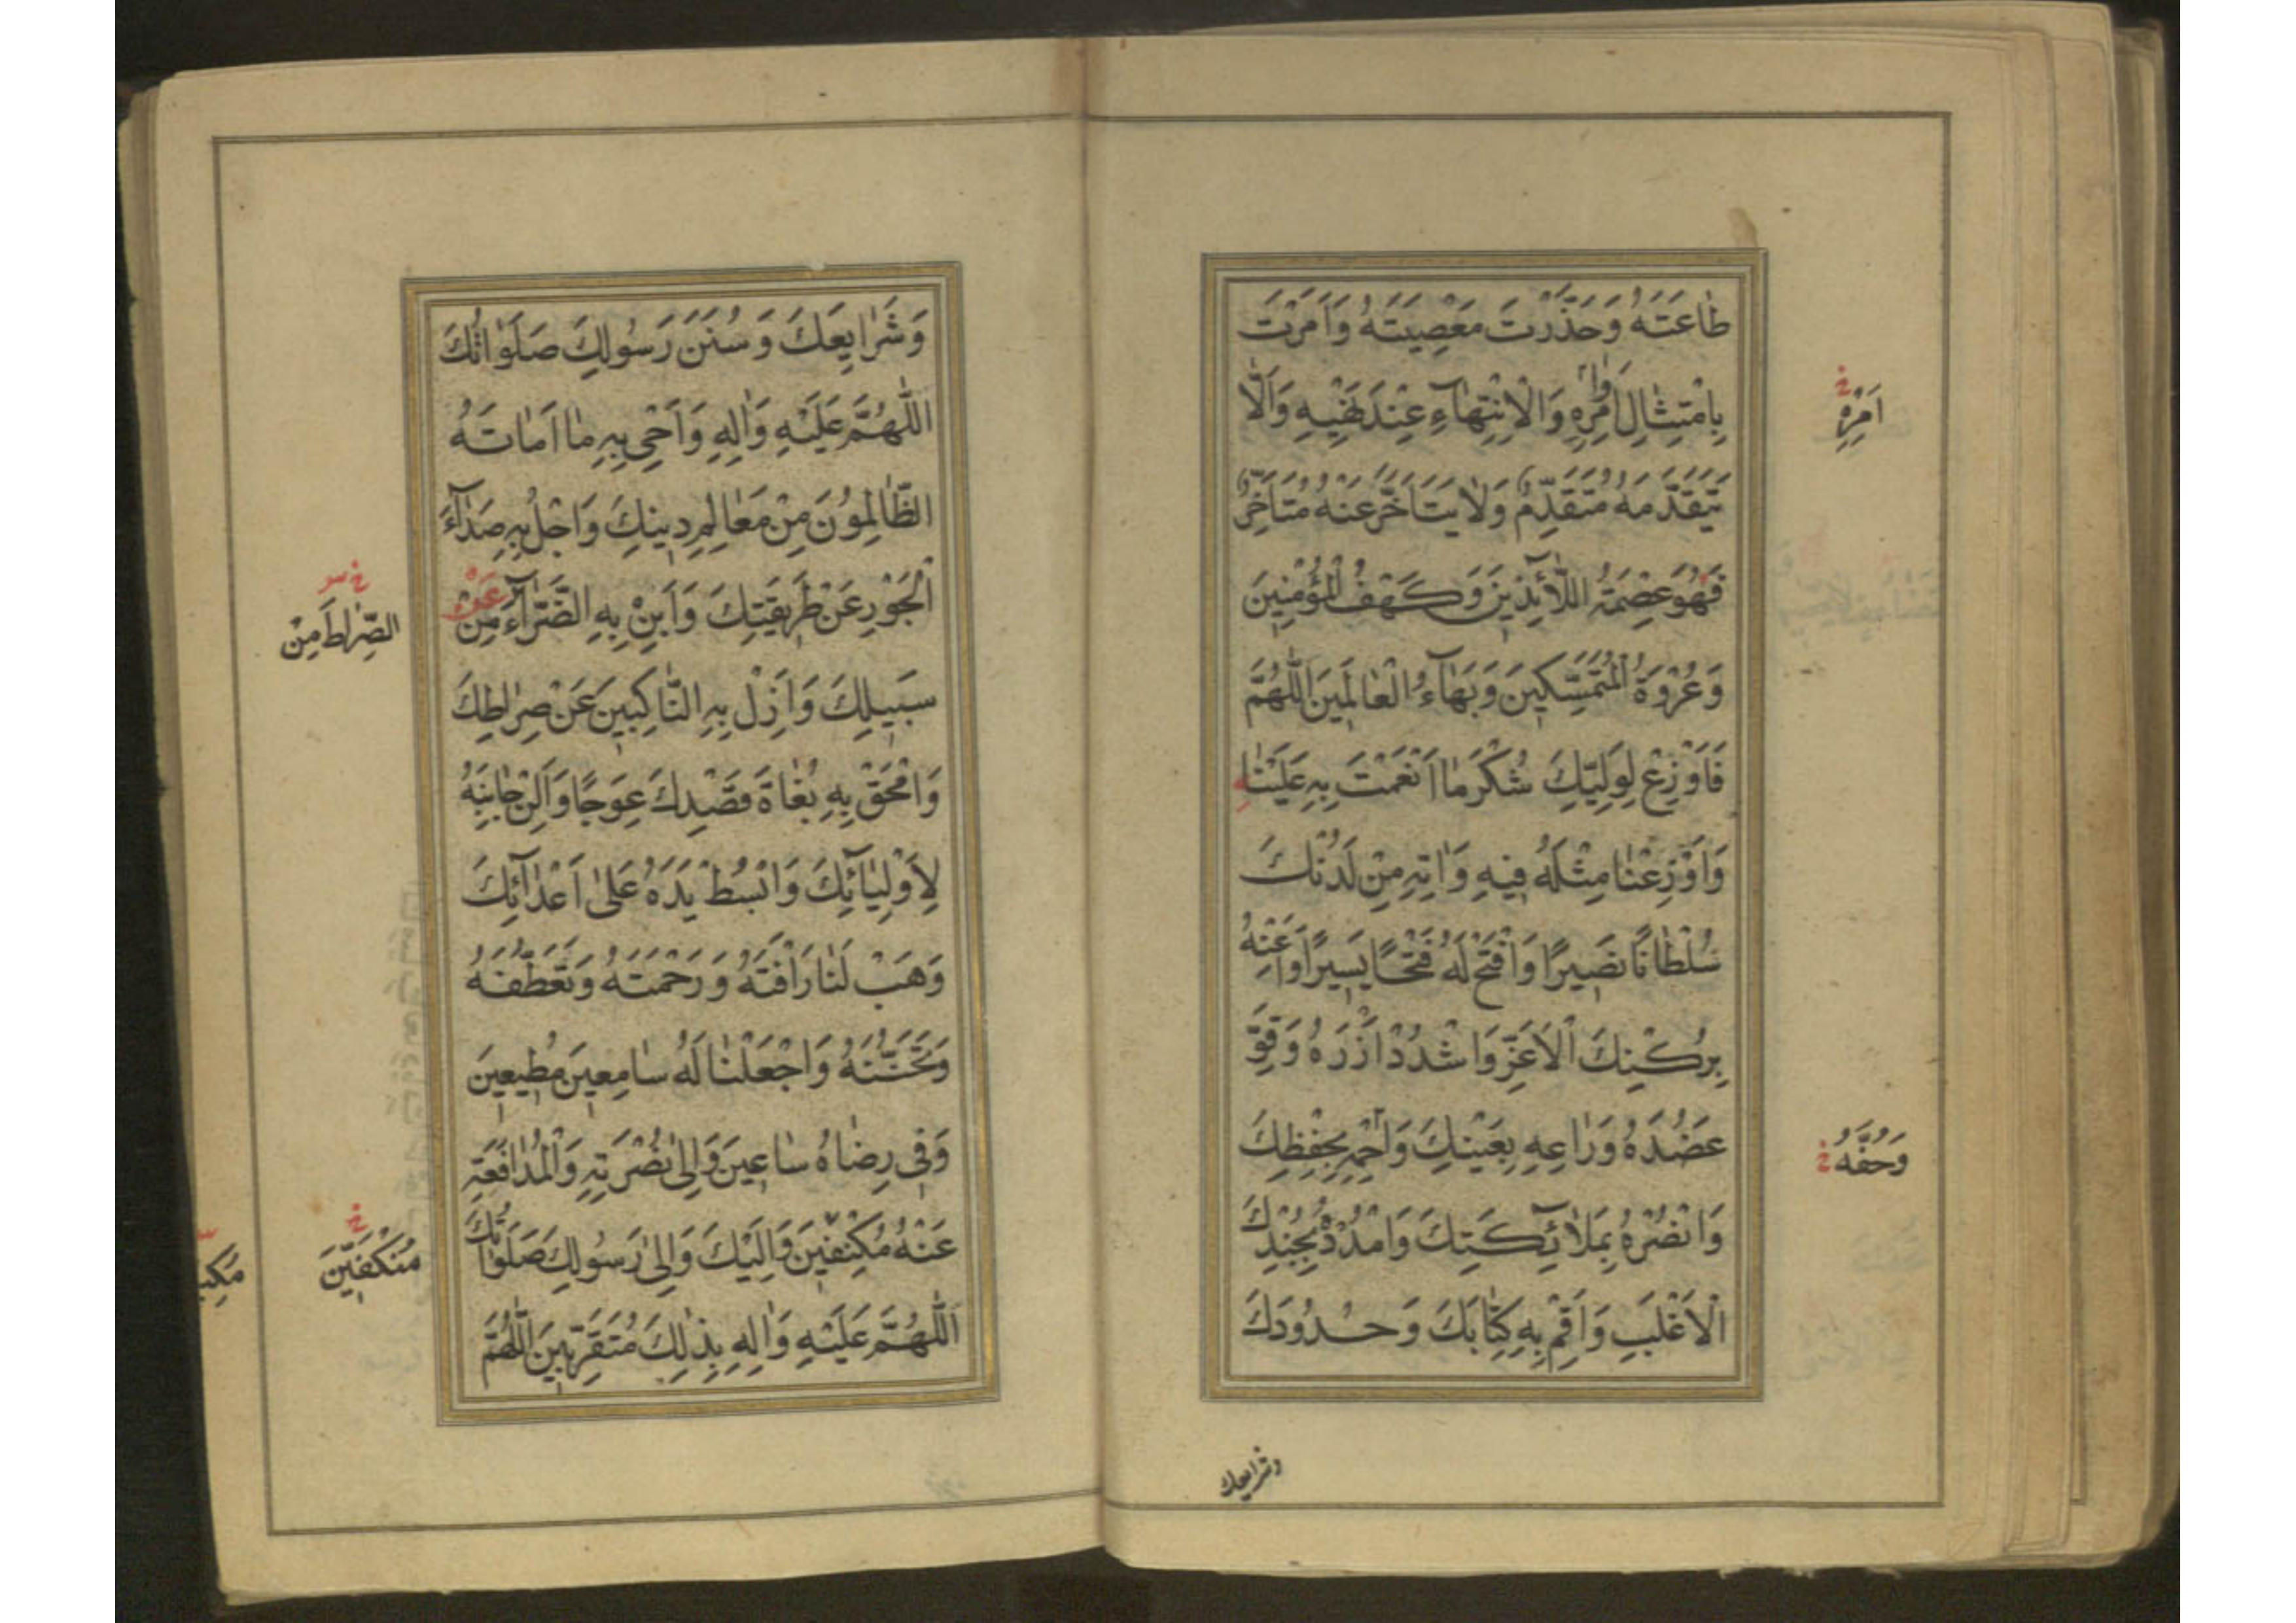 طَاعَتَهُ وَحَذَّرْتَ مَعْصِيَتَهُ وَاَمَرْتَ
بِامْتِثَالِ اَوَامِرِهِ وَالْاِنْتِهَاءِ عِنْدَ نَهْيِهِ وَاَلَّا
يَتَقَدَّمَهُ مُتَقَدِّمٌ وَلَا يَتَاَخَّرَ عَنْهُ مُتَاَخِّرٌ
فَهُوَ عِصْمَةُ اللَّائِذِينَ وَكَهْفُ الْمُؤْمِنِينَ
وَعُرْوَةُ الْمُتَمَسِّكِينَ وَبَهَاءُ الْعَالَمِينَ اللَّهُمَّ
فَاَوْزِعْ لِوَلِيِّكَ شُكْرَ مَا اَنْعَمْتَ بِهِ عَلَيْنَا
وَاَوْزِعْنَا مِثْلَهُ فِيهِ وَاٰتِهِ مِنْ لَدُنْكَ
سُلْطَانًا نَصِيرًا وَافْتَحْ لَهُ فَتْحًا يَسِيرًا وَاَعِنْهُ
بِرُكْنِكَ الْاَعَزِّ وَاشْدُدْ اَزْرَهُ وَقَوِّ
عَضُدَهُ وَرَاعِهِ بِعَيْنِكَ وَاحْمِهِ بِحِفْظِكَ
وَانْصُرْهُ بِمَلَائِكَتِكَ وَامْدُدْهُ بِجُنْدِكَ
الْاَغْلَبِ وَاَقِمْ بِهِ كِتَابَكَ وَحُدُودَكَ
اَمْرِهِ خ
وَحُفَّهُ خ
وشرايعك
وَشَرَايِعَكَ وَسُنَنَ رَسُولِكَ صَلَوَاتُكَ
اللَّهُمَّ عَلَيْهِ وَاٰلِهِ وَاَحْيِ بِهِ مَا اَمَاتَهُ
الظَّالِمُونَ مِنْ مَعَالِمِ دِينِكَ وَاجْلُ بِهِ صَدَاءَ
الْجَوْرِ عَنْ طَرِيقَتِكَ وَاَبِنْ بِهِ الضَّرَّاءَ مِنْ عَنْ
سَبِيلِكَ وَاَزِلْ بِهِ النَّاكِبِينَ عَنْ صِرَاطِكَ
وَامْحَقْ بِهِ بُغَاةَ قَصْدِكَ عِوَجًا وَاَلِنْ جَانِبَهُ
لِاَوْلِيَائِكَ وَابْسُطْ يَدَهُ عَلَى اَعْدَائِكَ
وَهَبْ لَنَا رَاْفَتَهُ وَرَحْمَتَهُ وَتَعَطُّفَهُ
وَتَحَنُّنَهُ وَاجْعَلْنَا لَهُ سَامِعِينَ مُطِيعِينَ
وَفِي رِضَاهُ سَاعِينَ وَاِلَى نُصْرَتِهِ وَالْمُدَافَعَةِ
عَنْهُ مُكْنِفِينَ وَاِلَيْكَ وَاِلَى رَسُولِكَ صَلَوَاتُكَ
اَللَّهُمَّ عَلَيْهِ وَاٰلِهِ بِذٰلِكَ مُتَقَرِّبِينَ اَللَّهُمَّ
الصِّرَاطَ مِنْ
خ